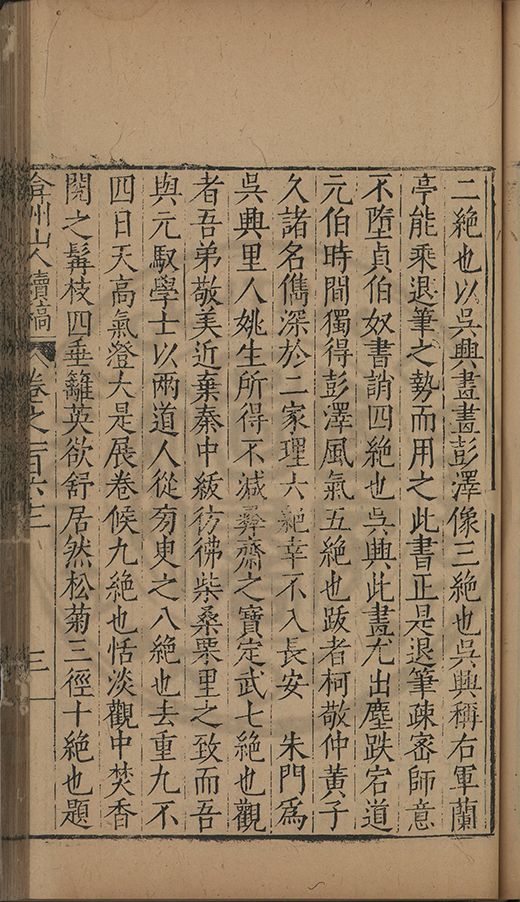 二絶也以吳興畫畫彭澤像三絶也吳興稱右軍蘭
亭能乘退筆之勢而用之此書正是退筆疎宻師意
不墮貞伯奴書誚四絶也吳興此畫尤出塵跌宕道
元伯時間獨得彭澤風氣五絶也跋者柯敬仲黃子
久諸名儁深於二家理六絶幸不入長安 朱門爲
吳興里人姚生所得不減彛齋之寶定武七絶也觀
者吾弟敬美近棄秦中紱彷彿柴桑栗里之致而吾
與元馭學士以兩道人從旁臾之八絶也去重九不
四日天高氣澄大是展卷候九絶也恬淡觀中焚香
閱之髯枝四垂籬英欲舒居然松菊三徑十絶也題
弇州山人續稿 卷之一百六三 三